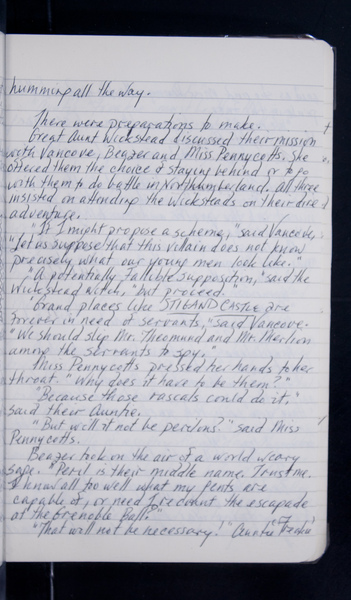 humming all the way.
There were preparations to make.
Great Aunt Wickstead discussed their mission
with Vancove, Beazer and Miss Pennycotts. She
offered them the choice of staying behind or to go
with them to do battle in Northumberland. All three
insisted on attending the Wicksteads on their dire
adventure.
"If I might propose a scheme," said Vancove,
"let us suppose that this villain does not know
precisely what our young men look like."
"A potentially fallible supposition," said the
Wickstead witch, "but proceed."
"Grand places like CASTLE are
forever in need of servants," said Vancove.
"We should slip Mr. and Mr. Merlion
among the servants to spy."
Miss Pennycotts pressed her hands to her
throat. "Why does it have to be them?"
"Because those rascals could do it,"
said their Auntie.
"But will it not be perilous?" said Miss
Pennycotts.
Beazer took on the air of a world weary
sage. "Peril is their middle name. Trust me.
I know all too well what my gents are
capable of, or need I recount the escapade
at the Grenoble Ball?"
"That will not be necessary!" Auntie